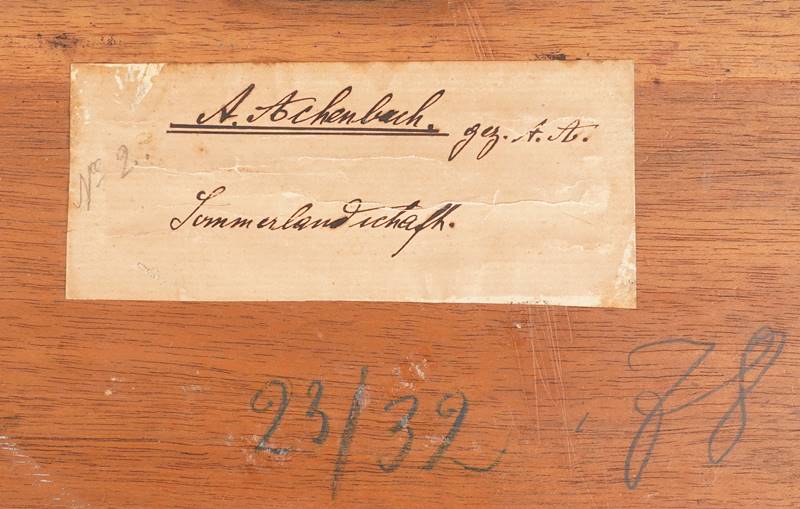 A. Achenbach.
gez. A. A.
No 2.
Sommerlandschaft.
23/32
78